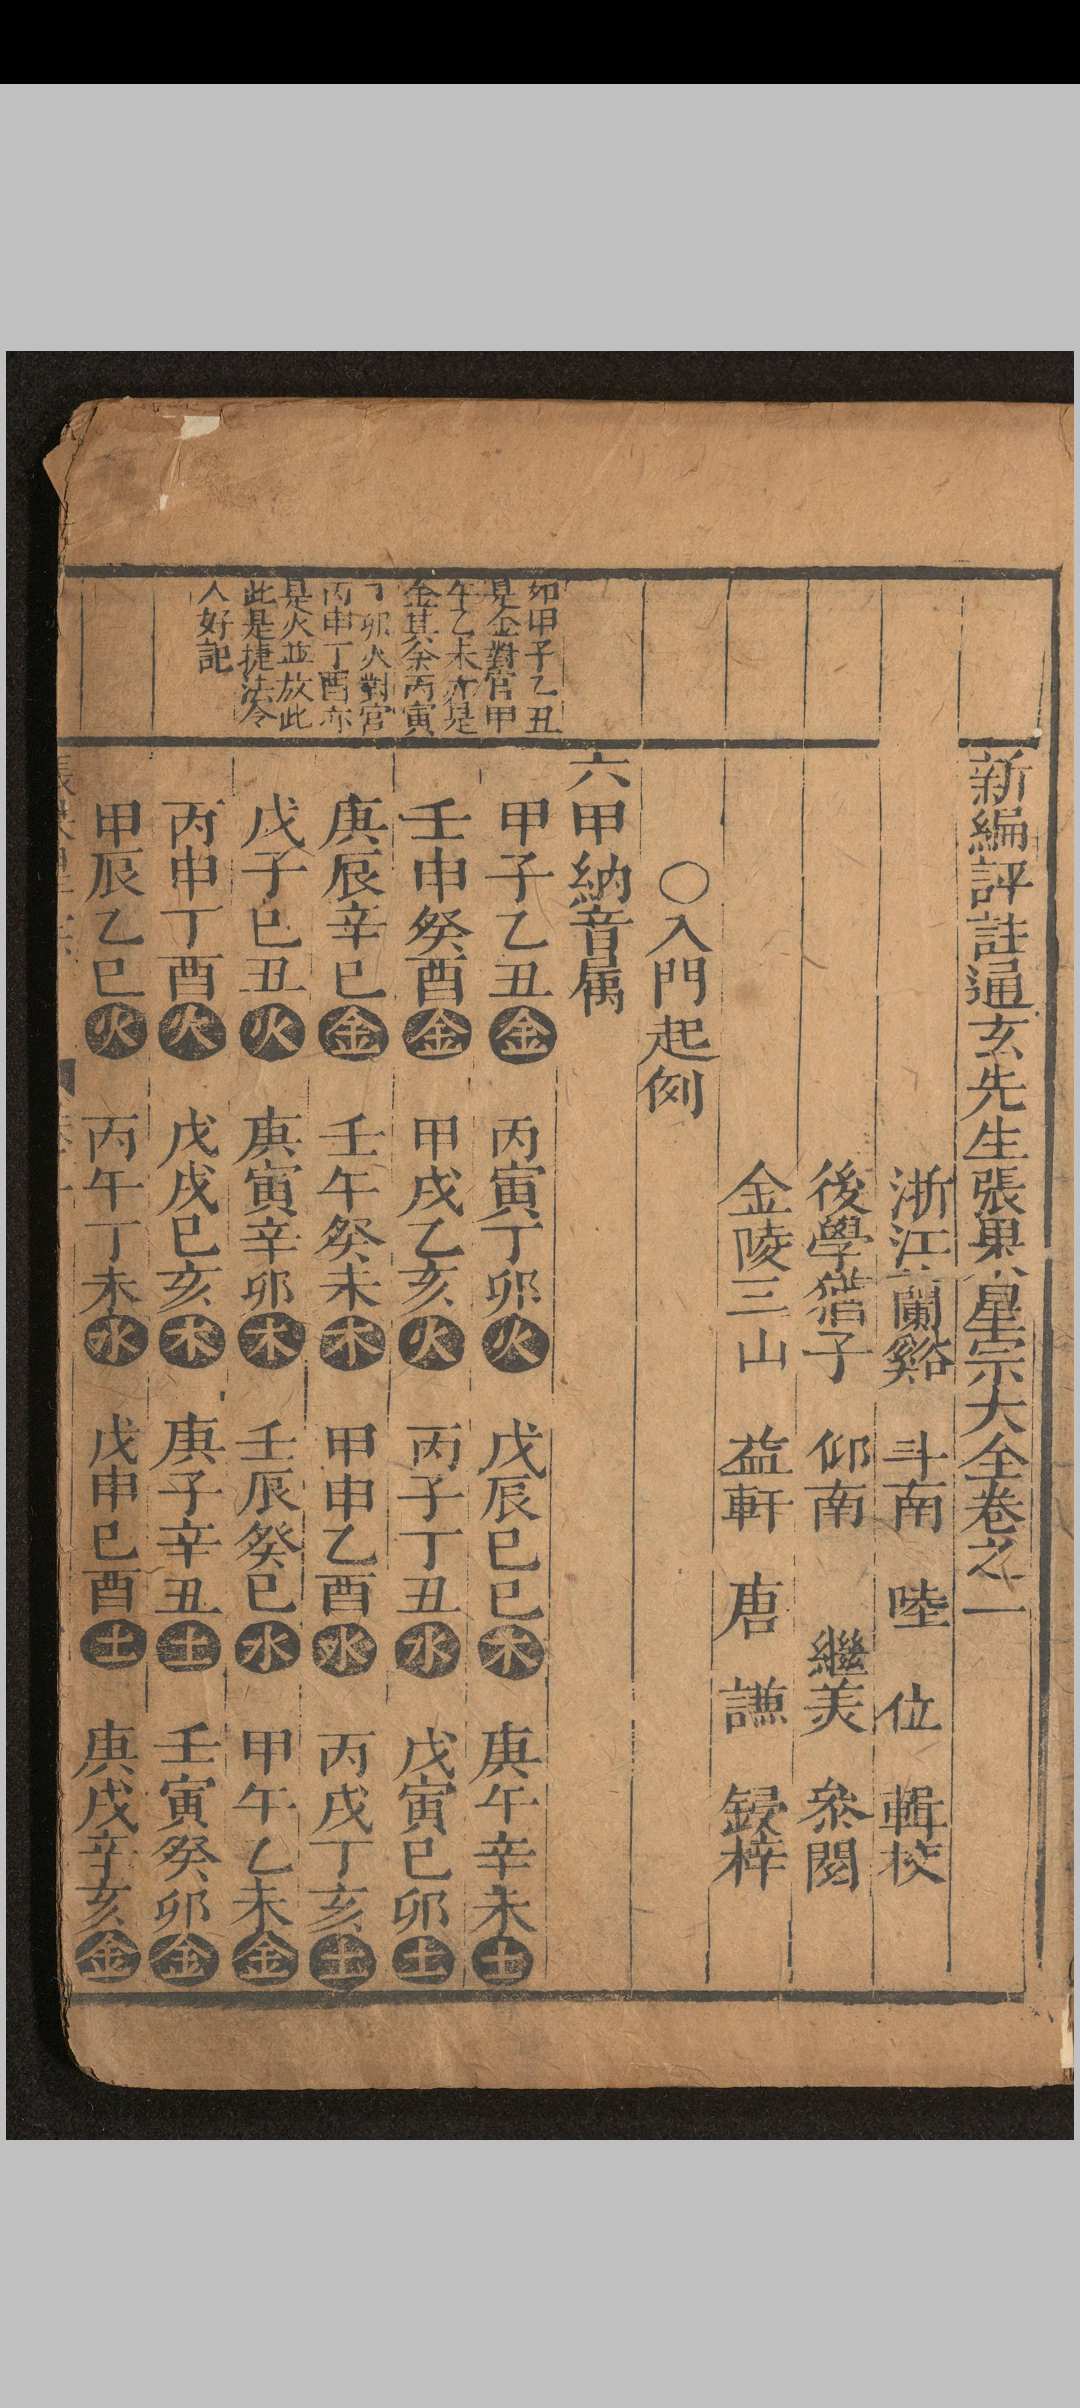 新編評註通玄先生張果星宗大全卷之一
浙江蘭谿 斗南 陸 位 輯校
後學猶子 仰南 繼美 叅閱
金陵三山 益軒 唐 謙 鋟梓
○入門起例
六甲納音属
如甲子乙丑
是金對宮甲
午乙未亦是
金其癸丙寅
丁卯火對宮
丙申丁酉亦
是火並放此
此是捷法令
人好記
甲子乙丑金 丙寅丁卯火 戊辰巳巳木 庚午辛未土
壬申癸酉金 甲戌乙亥火 丙子丁丑水 戊寅巳卯土
庚辰辛巳金 壬午癸未木 甲申乙酉水 丙戌丁亥土
戊子巳丑火 庚寅辛卯木 壬辰癸巳水 甲午乙未金
丙申丁酉火 戊戌巳亥木 庚子辛丑土 壬寅癸卯金
甲辰乙巳火 丙午丁未水 戊申巳酉土 庚戌辛亥金